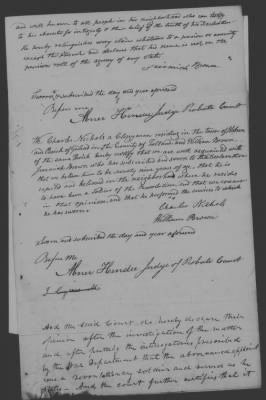 and will known to all people in his neighborhood who can testify
to his character for integrity & the belief of the truth of his Declaration
He hereby relinquishes every claim whatever to a pension or annuity
except the present and declares that his name is not on the
pension roll of the agency of any state
Jeremiah Brown
Sworn & subscribed the day and year aforesaid
Before me
Abner Hendee Judge of Probate Court
We Charles Nichols a Clergyman residing in the town of Hebron
and Parish of Gilead in the County of Tolland and William Brown
of the same Parish hereby certify that we are well acquainted with
Jeremiah Brown who has subscribed and sworn to the Declaration
that we believe him to be seventy years of age, that he is
reputed and believed in the neighborhood where he resides
to have been a soldier of the Revolution and that we concur
in that opinion, and that he performed the services to which
he has sworn
Charles Nichols
William Brown
Sworn and subscribed the day and year aforesaid
Before Me
Abner Hendee Judge of Probate Court
And the said Court do hereby declare their
opinion after the investigation of the matter
and after putting the interrogatories prescribed
by the War department that the above named applicant
was a revolutionary soldier and served as he
states. And the court further certifies that it